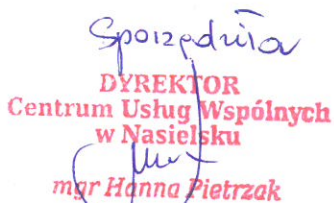 Sporządziła
DYREKTOR
Centrum Usług Wspólnych
w Nasielsku
mgr Hanna Pietrzak